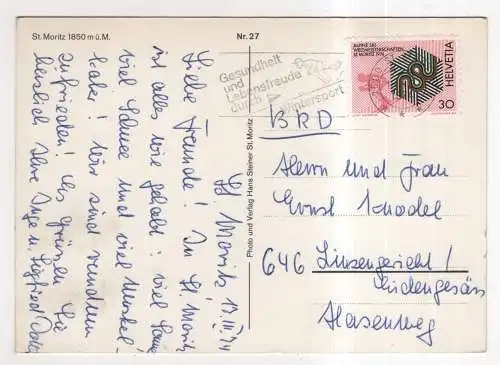 St. Moritz 1850 m ü. M.
Nr. 27
St. Moritz 13. III 74
Liebe Freunde! In St. Moritz
ist alles wie gehabt: viel Sonne
viel Schnee und viel Muskel-
kater! Wir sind rundum
zufrieden! Es grüssen Sie
herzlich Ihre Inge u. Siegfried
Photo und Verlag Hans Steiner St. Moritz
Gesundheit
und
Lebensfreude
durch
Wintersport
ALPINE SKI
WELTMEISTERSCHAFTEN
ST. MORITZ 1974
HELVETIA
30
BRD
Herrn und Frau
Ernst Schadel
646 Linsengericht /
Lüdengesäss
Hasenweg